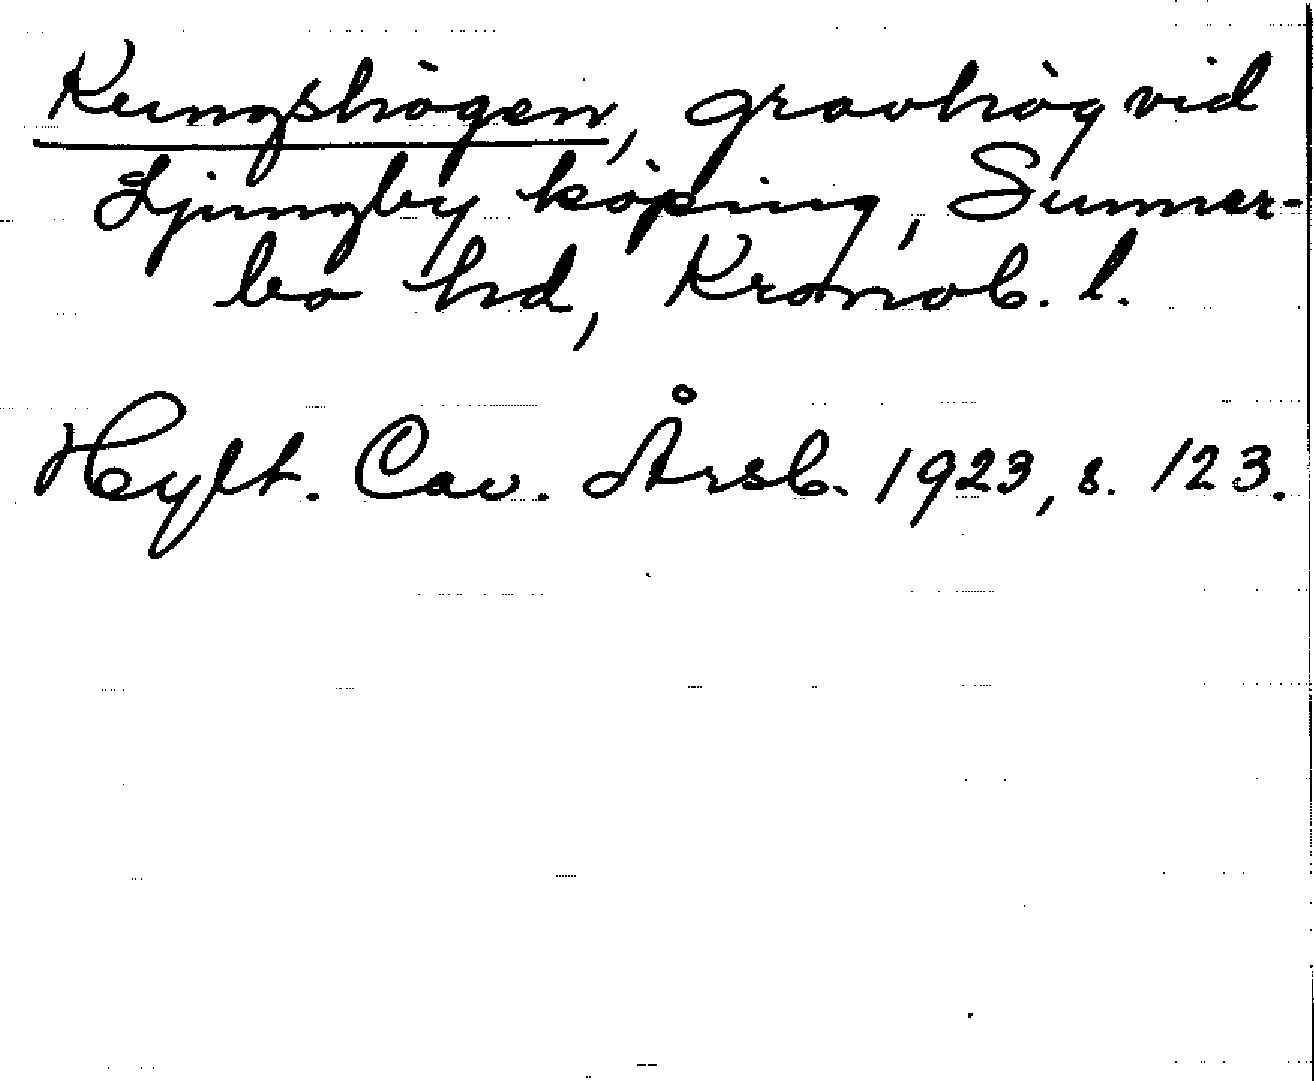 Kungshögen, gravhög vid
Ljungby köping, Sunner-
bo hd, Kronob. l.
Hylt. Cav. Årsb. 1923, s. 123.